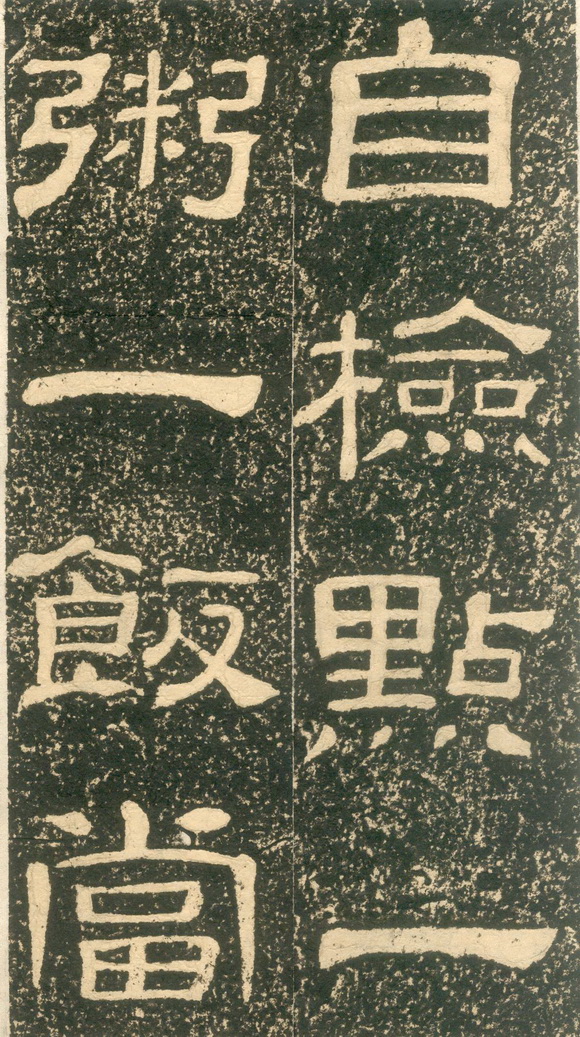 自檢點一
粥一飯當